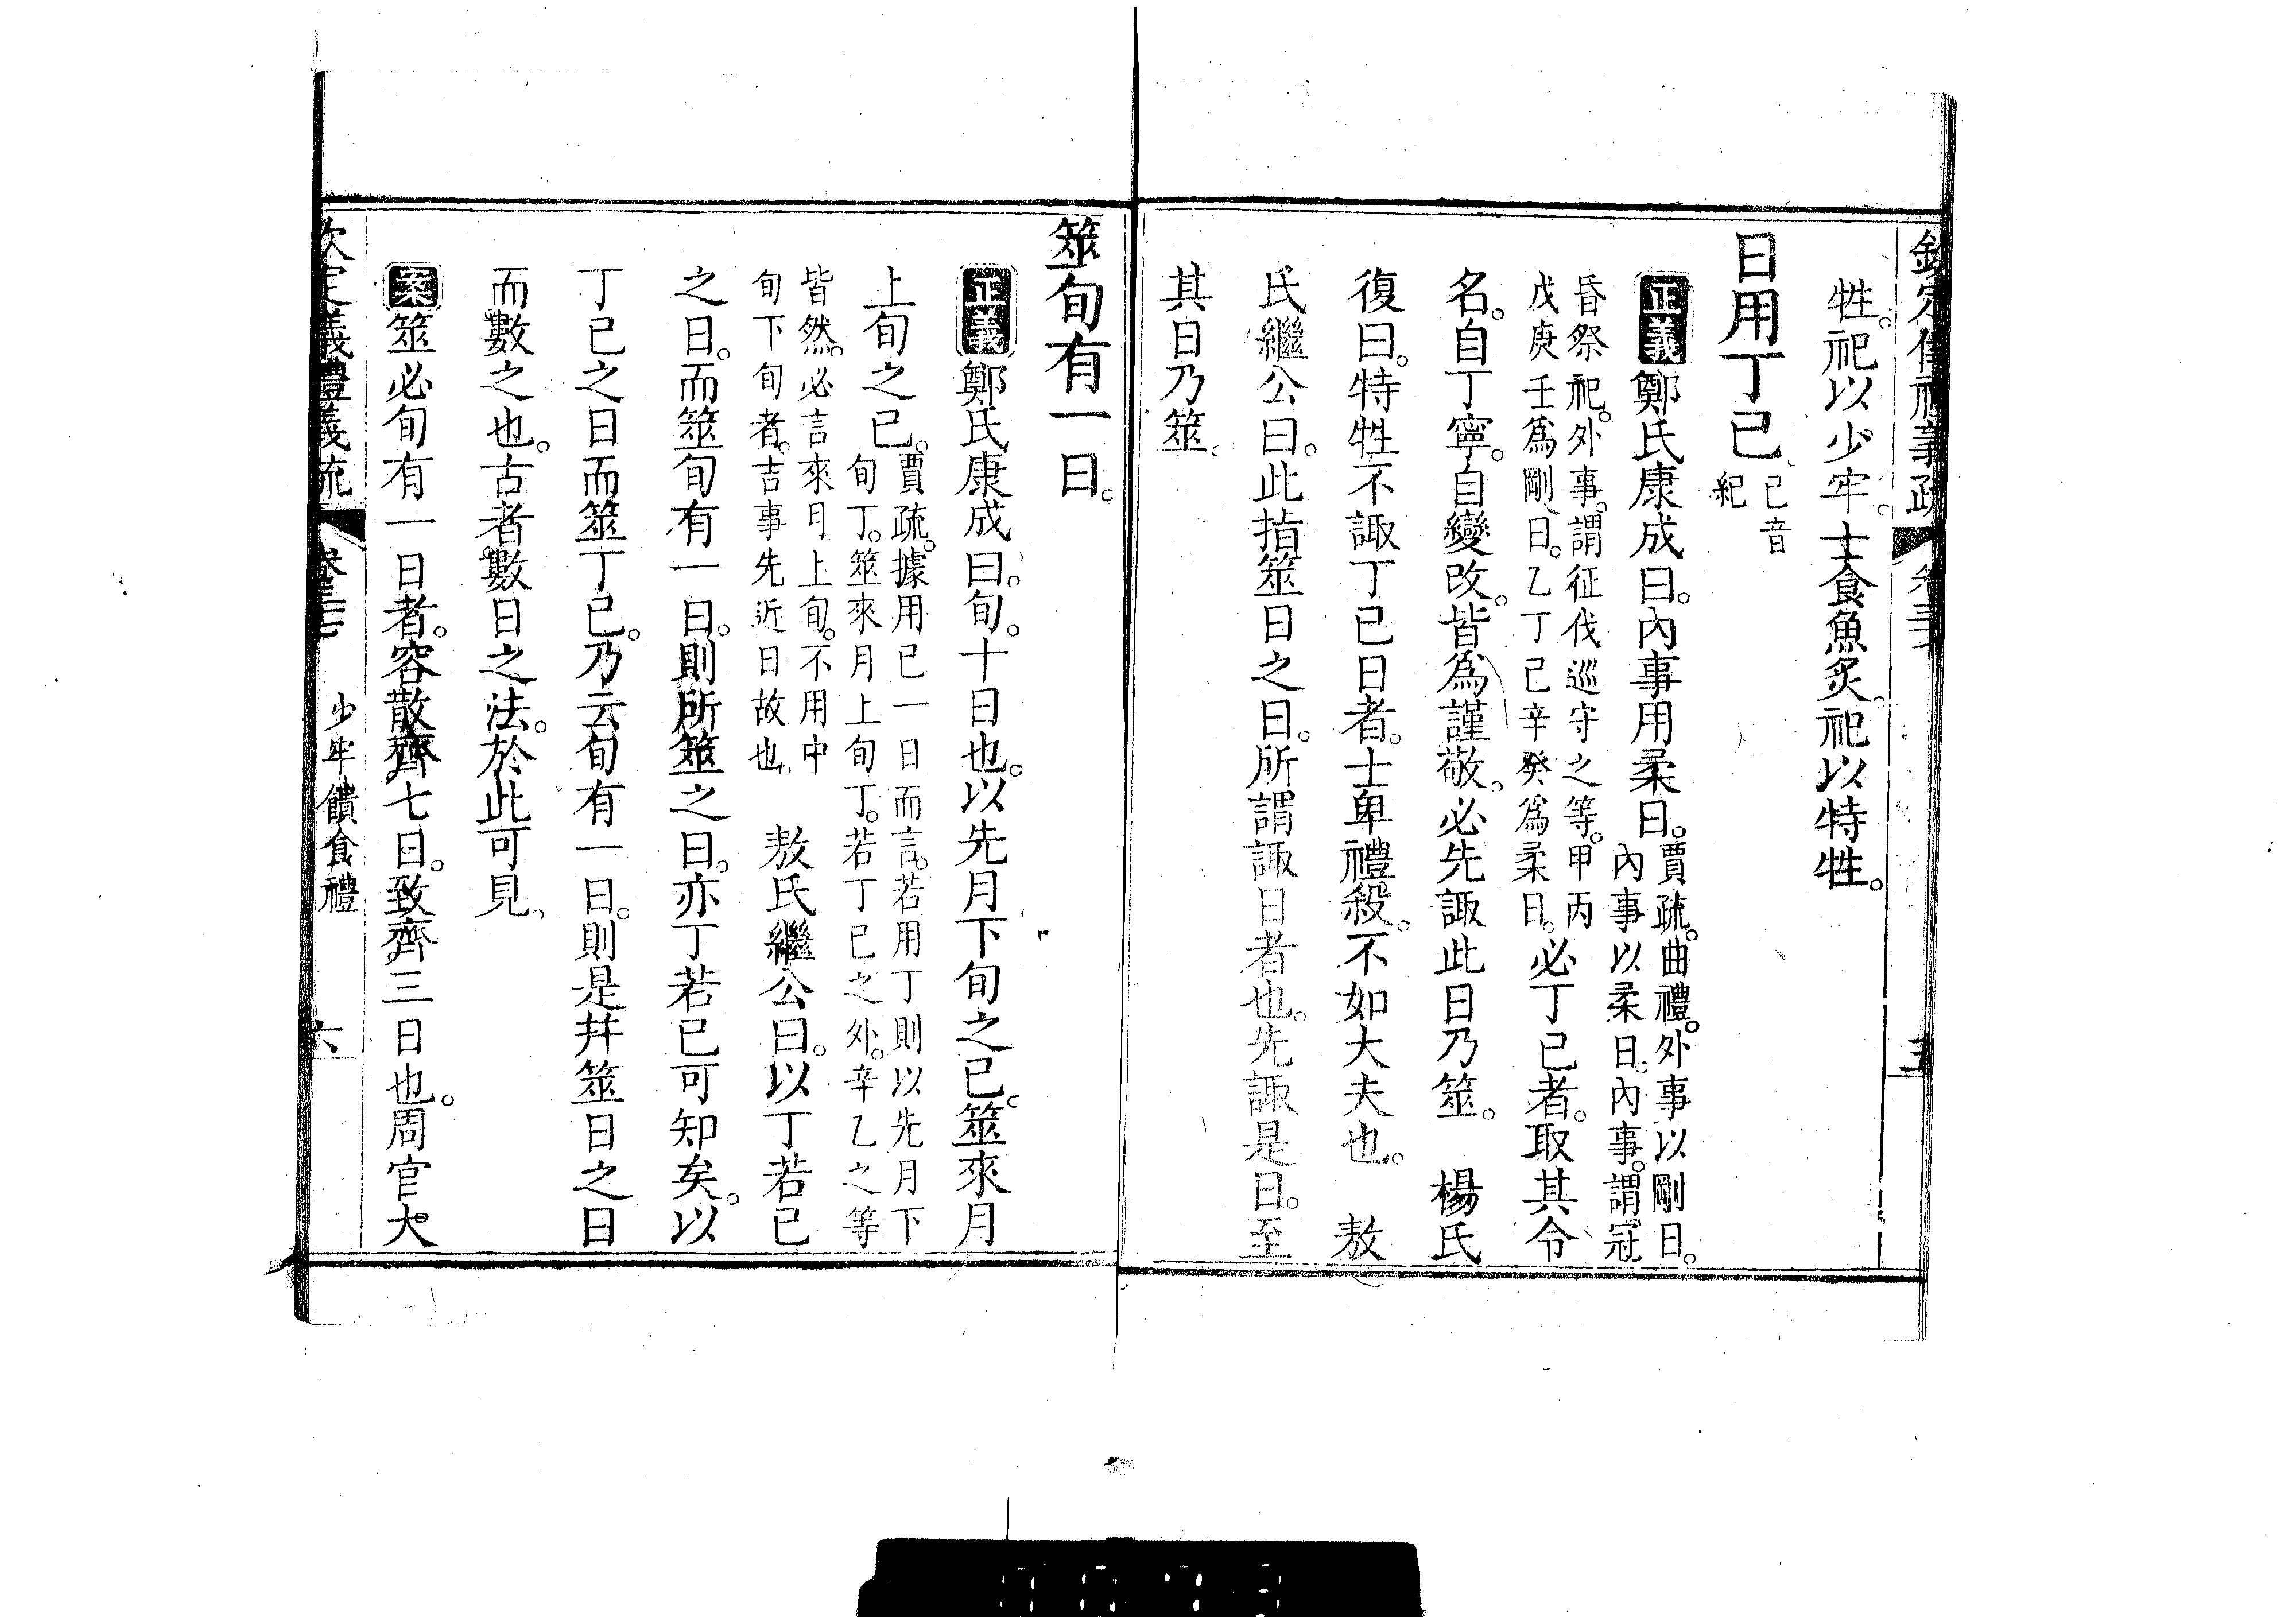 欽定儀禮義疏 卷三十七 五
牲。祀以少牢。士食魚炙。祀以特牲。
日用丁己 己音紀
正義 鄭氏康成曰。內事用柔日。賈疏。曲禮。外事以剛日。內事以柔日。內事。謂冠
昏祭祀。外事。謂征伐巡守之等。甲丙戊庚壬爲剛日。乙丁己辛癸爲柔日。必丁己者。取其令
名。自丁寧。自變改。皆爲謹敬。必先諏此日乃筮。 楊氏
復曰。特牲不諏丁己日者。士卑禮殺。不如大夫也。 敖
氏繼公曰。此指筮日之日。所謂諏日者也。先諏是日。至
其日乃筮。
筮旬有一日。
正義 鄭氏康成曰。旬。十日也。以先月下旬之己。筮來月
上旬之己。賈疏。據用己一日而言。若用丁則以先月下旬丁。筮來月上旬丁。若丁己之外。辛乙之等
皆然。必言來月上旬。不用中旬下旬者。吉事先近日故也。 敖氏繼公曰。以丁若己
之日。而筮旬有一日。則所筮之日。亦丁若己可知矣。以
丁己之日而筮丁己。乃云旬有一日。則是并筮日之日
而數之也。古者數日之法。於此可見。
案 筮必旬有一日者。容散齊七日。致齊三日也。周官大
欽定儀禮義疏 卷三十七 少牢饋食禮 六